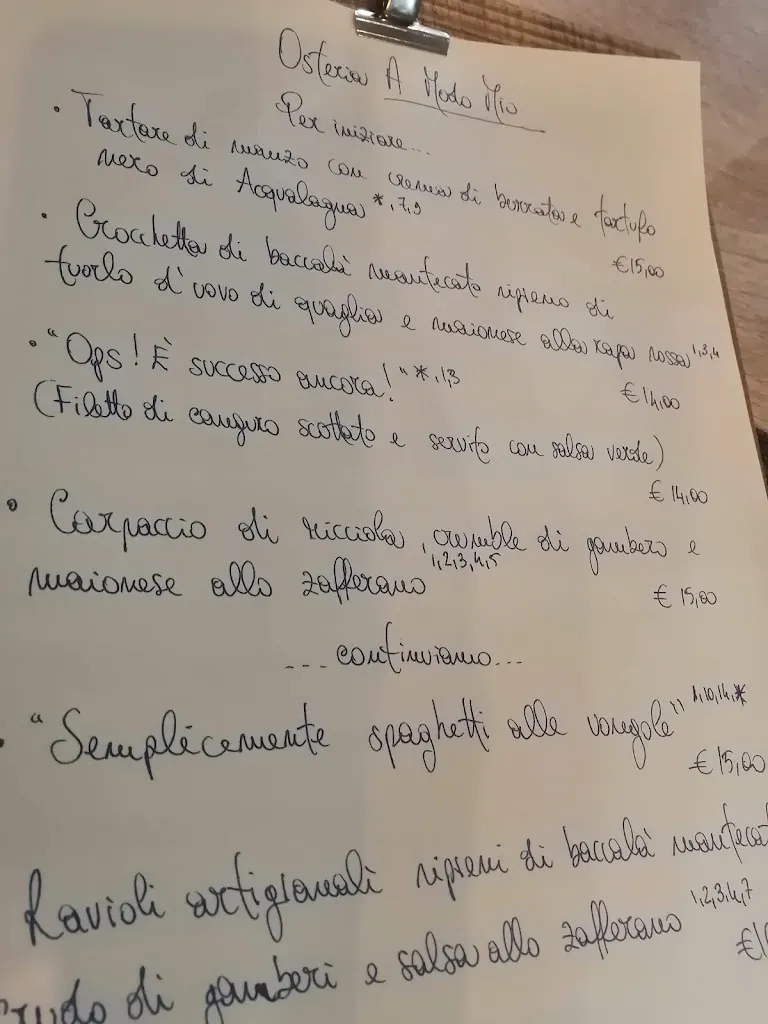 Osteria A Modo Mio
Per iniziare...
• Tartare di manzo con crema di burrata e tartufo
nero di Acqualagna *,7,9
€15,00
• Crocchetta di baccalà mantecato ripieno di
tuorlo d'uovo di quaglia e maionese alla rapa rossa 1,3,4
€14,00
• "Ops! È successo ancora!" *,1,3
(Filetto di canguro scottato e servito con salsa verde)
€ 14,00
• Carpaccio di ricciola, crumble di gambero e
maionese allo zafferano 1,2,3,4,5
€ 15,00
... continuiamo...
• "Semplicemente spaghetti alle vongole" 1,10,14,*
€ 15,00
Ravioli artigianali ripieni di baccalà mantecat
crudo di gamberi e salsa allo zafferano 1,2,3,4,7
€1